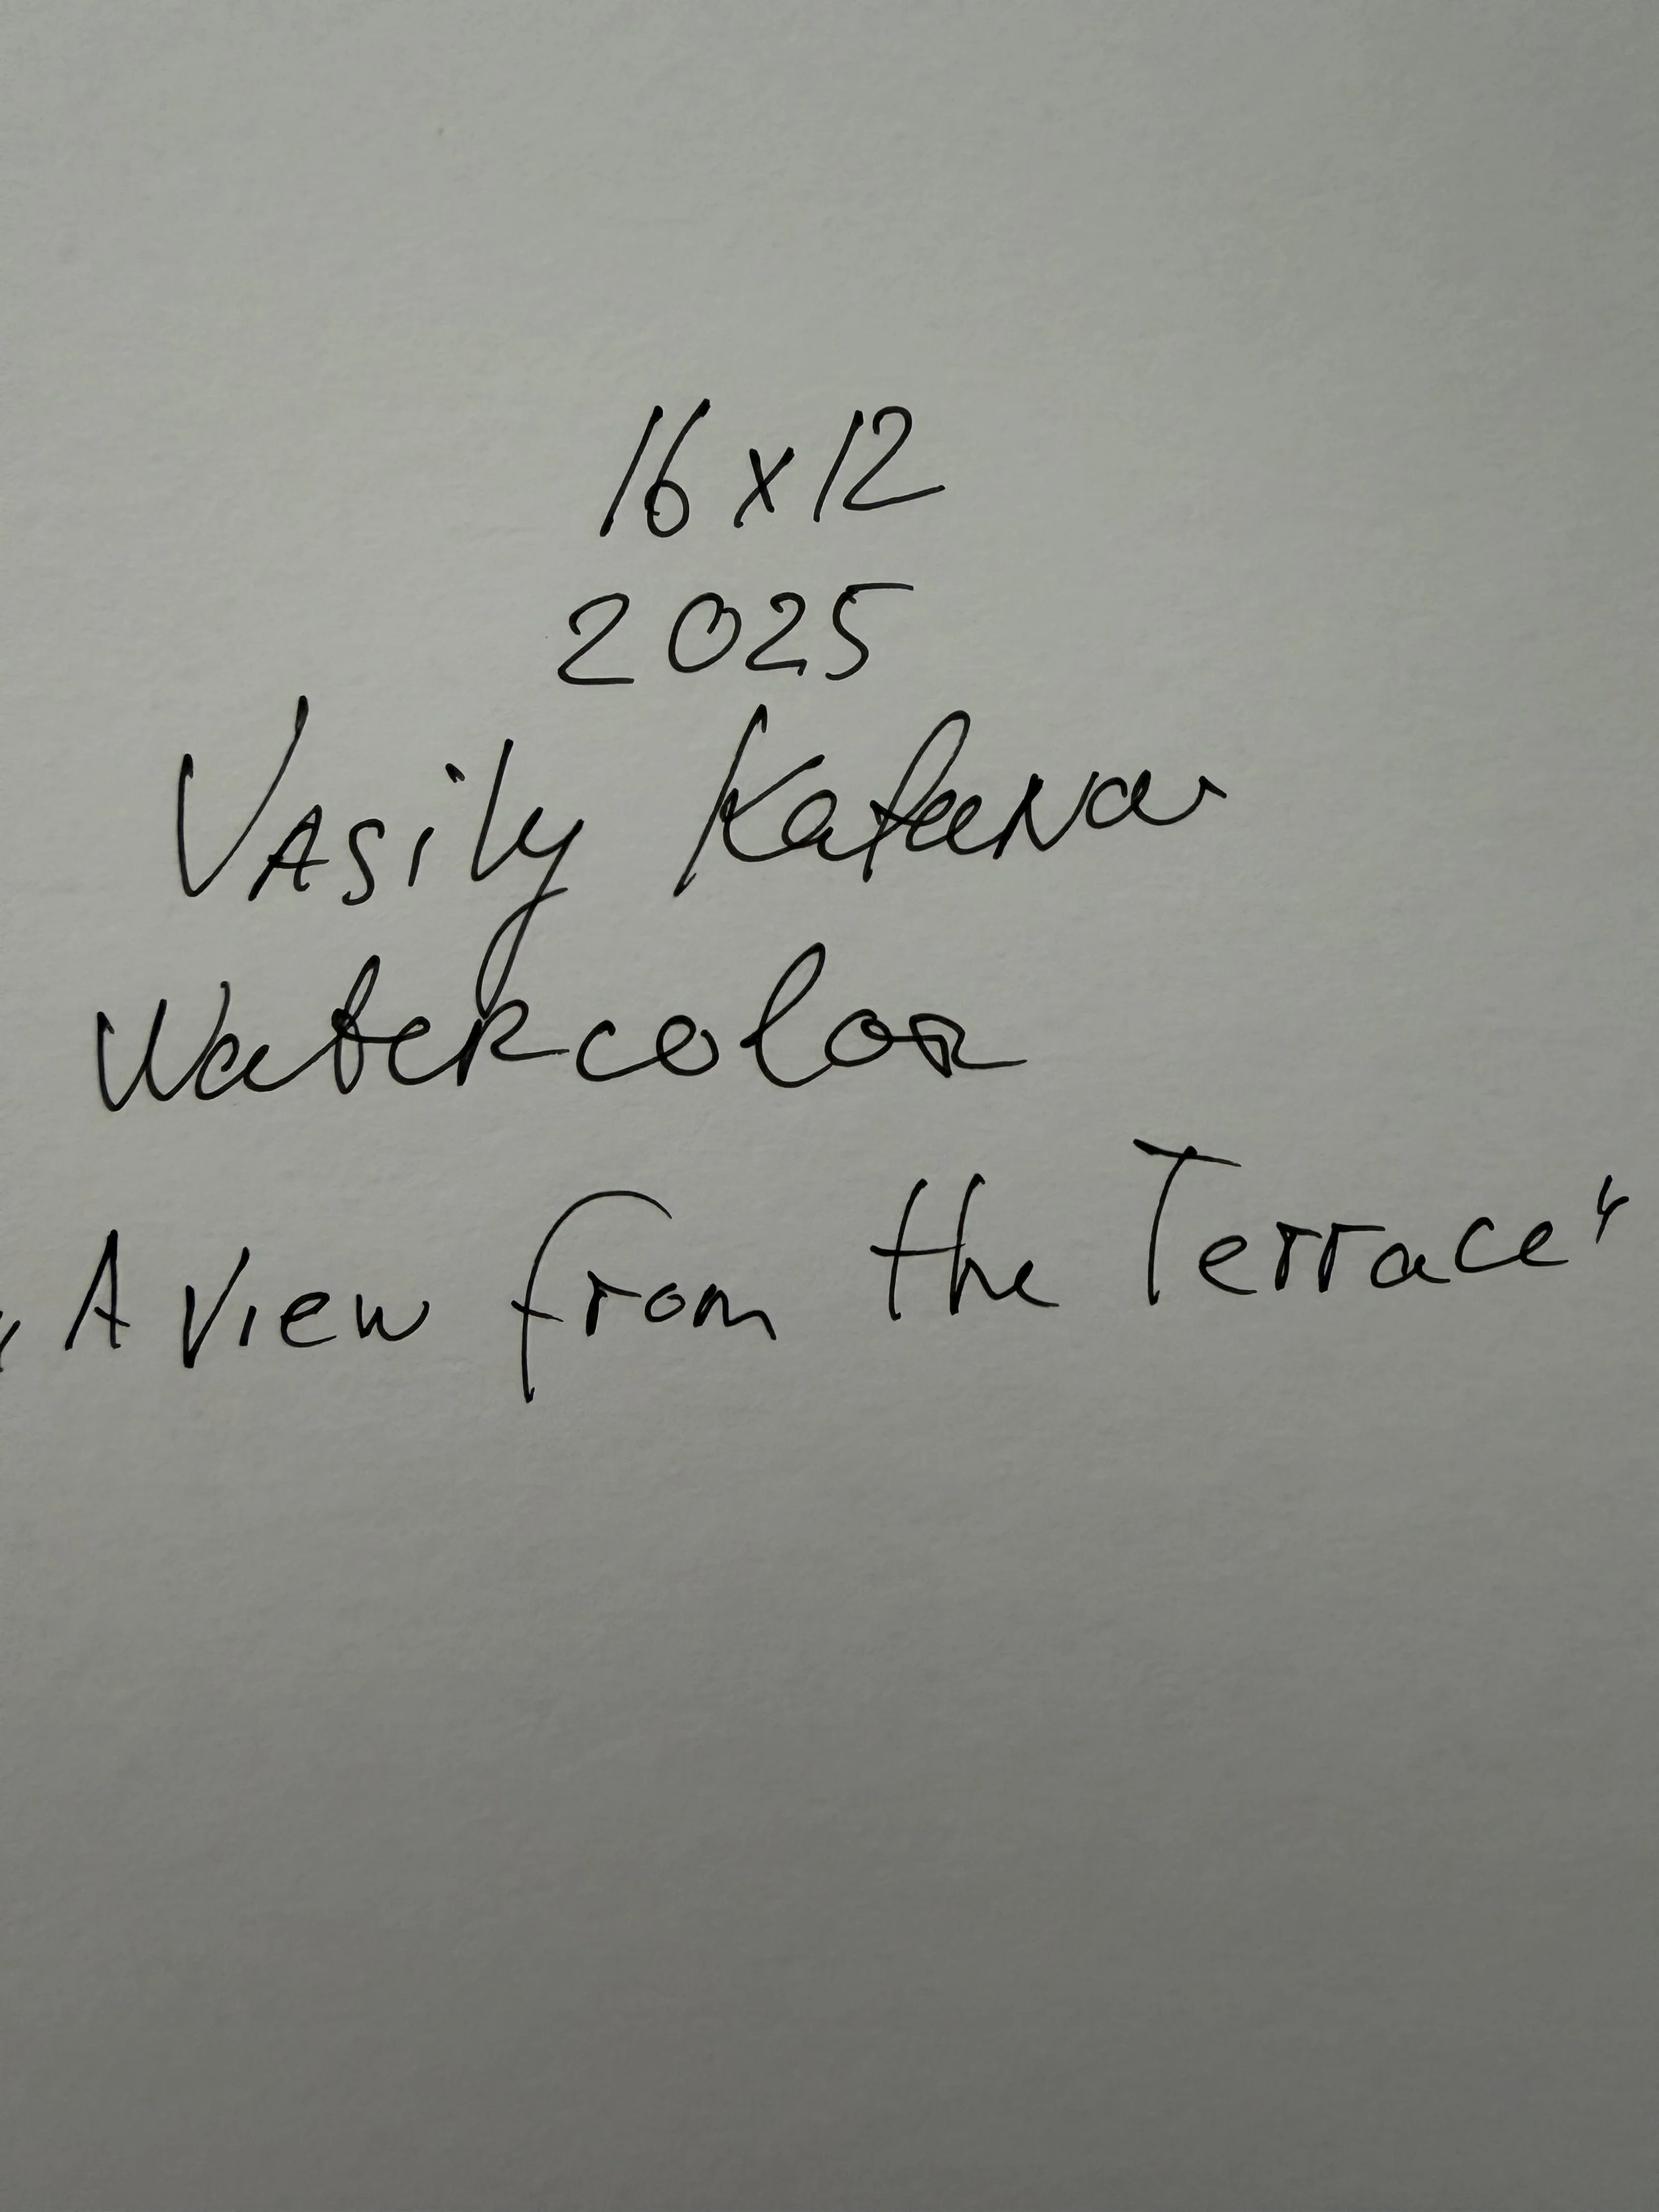 16 x 12
2025
Vasily Katana
Watercolor
„A View from the Terrace"